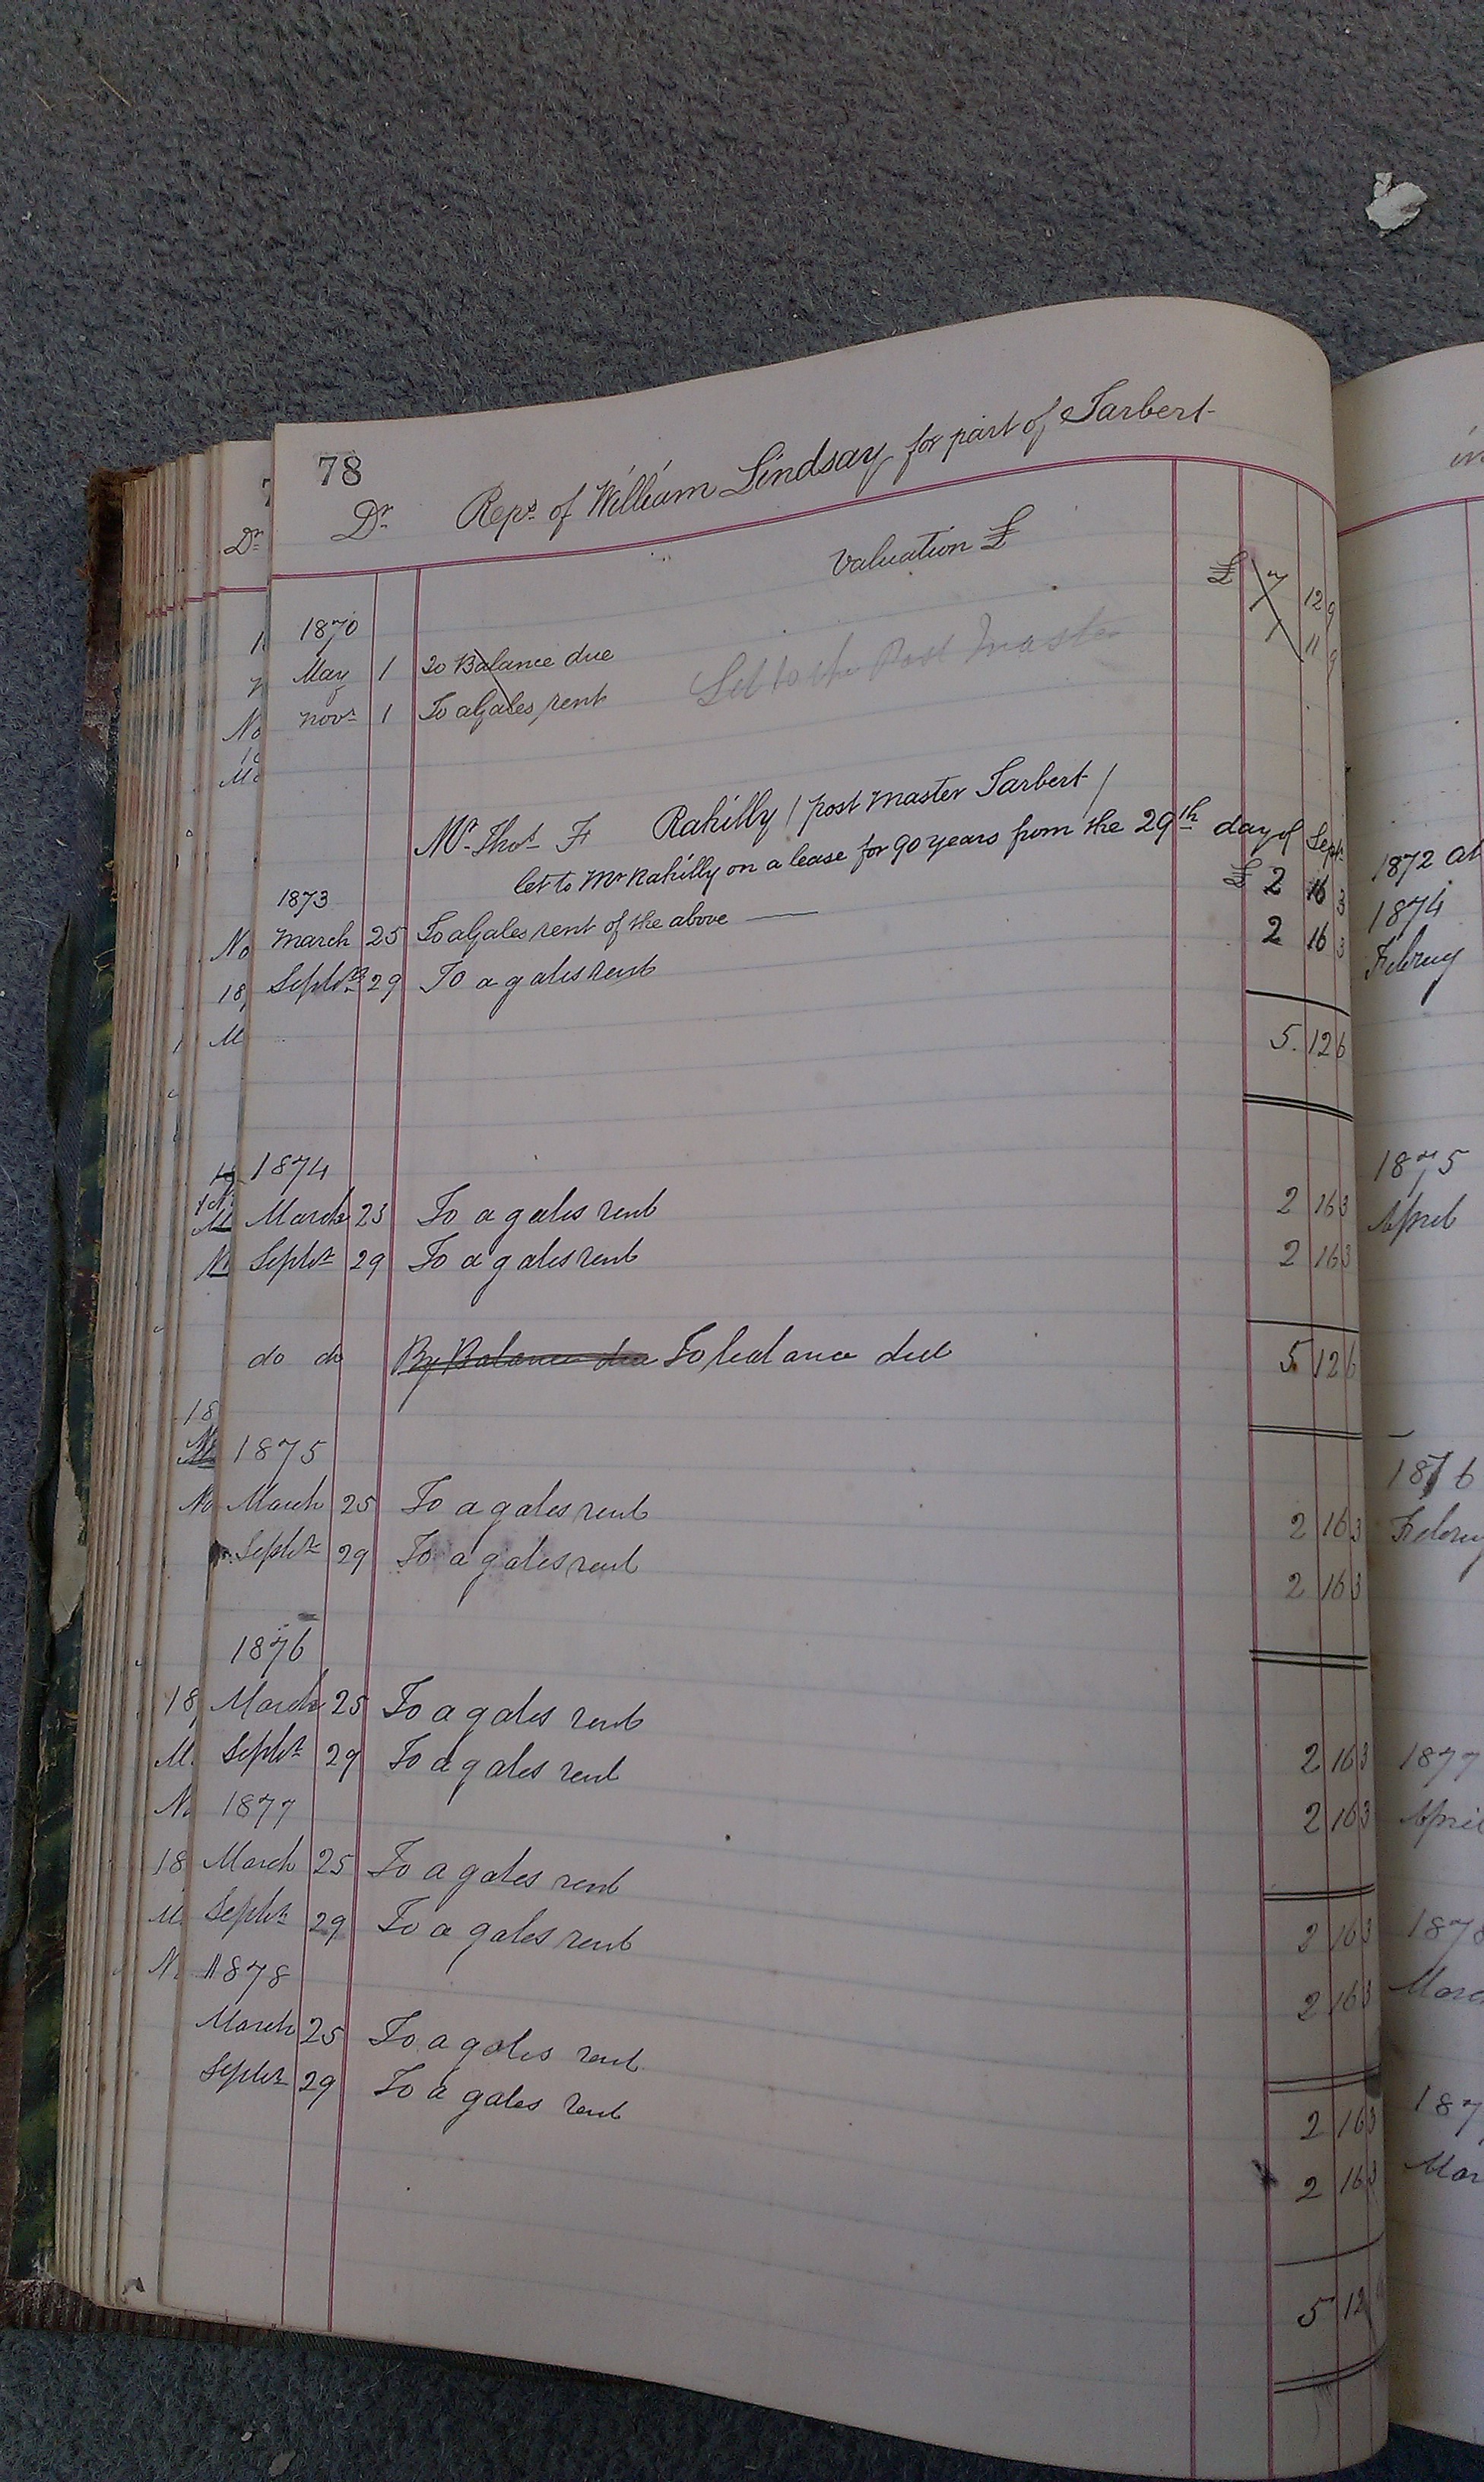 78
Dr Reps. of William Lindsay for part of Tarbert
Valuation £
1870
£ 7 12 9
May 1 To Balance due 11 9
Novr 1 To a Gales rent
Let to the Post Master
Mr. Thos. F Rahilly / post Master Tarbert /
let to Mr Rahilly on a lease for 90 years from the 29th day of Septr 1872 at
1873
March 25 To a Gales rent of the above — £ 2 16 3
Septbr 29 To a gales rent 2 16 3
5. 12 6
1874
March 25 To a gales rent 2 16 3
Septbr 29 To a gales rent 2 16 3
do do By Balance due To balance due 5 12 6
1875
March 25 To a gales rent 2 16 3
Septbr 29 To a gales rent 2 16 3
1876
March 25 To a gales rent 2 16 3
Septbr 29 To a gales rent 2 16 3
1877
March 25 To a gales rent 2 16 3
Septbr 29 To a gales rent 2 16 3
1878
March 25 To a gales rent 2 16 3
Septbr 29 To a gales rent 2 16 3
5 12
1874
Februy
1875
April
1876
Februy
1877
April
1878